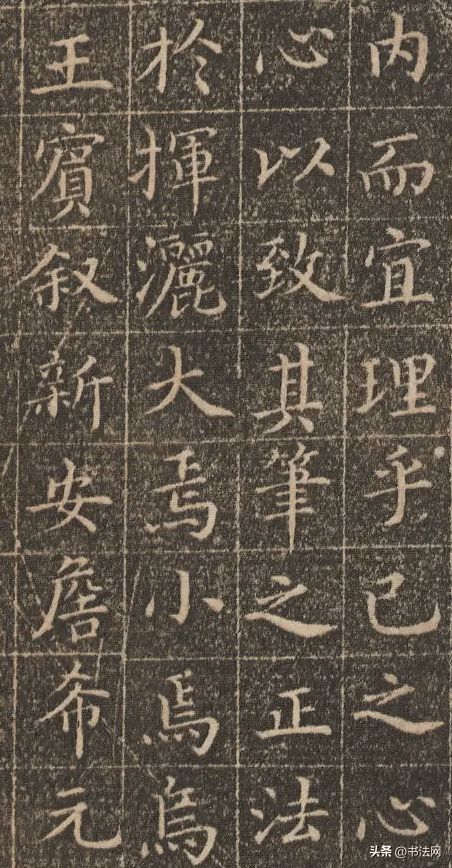 内而宜理乎己之心
心以致其筆之正法
於揮灑大焉小焉焉
王賓叙新安詹希元
头条 @书法网